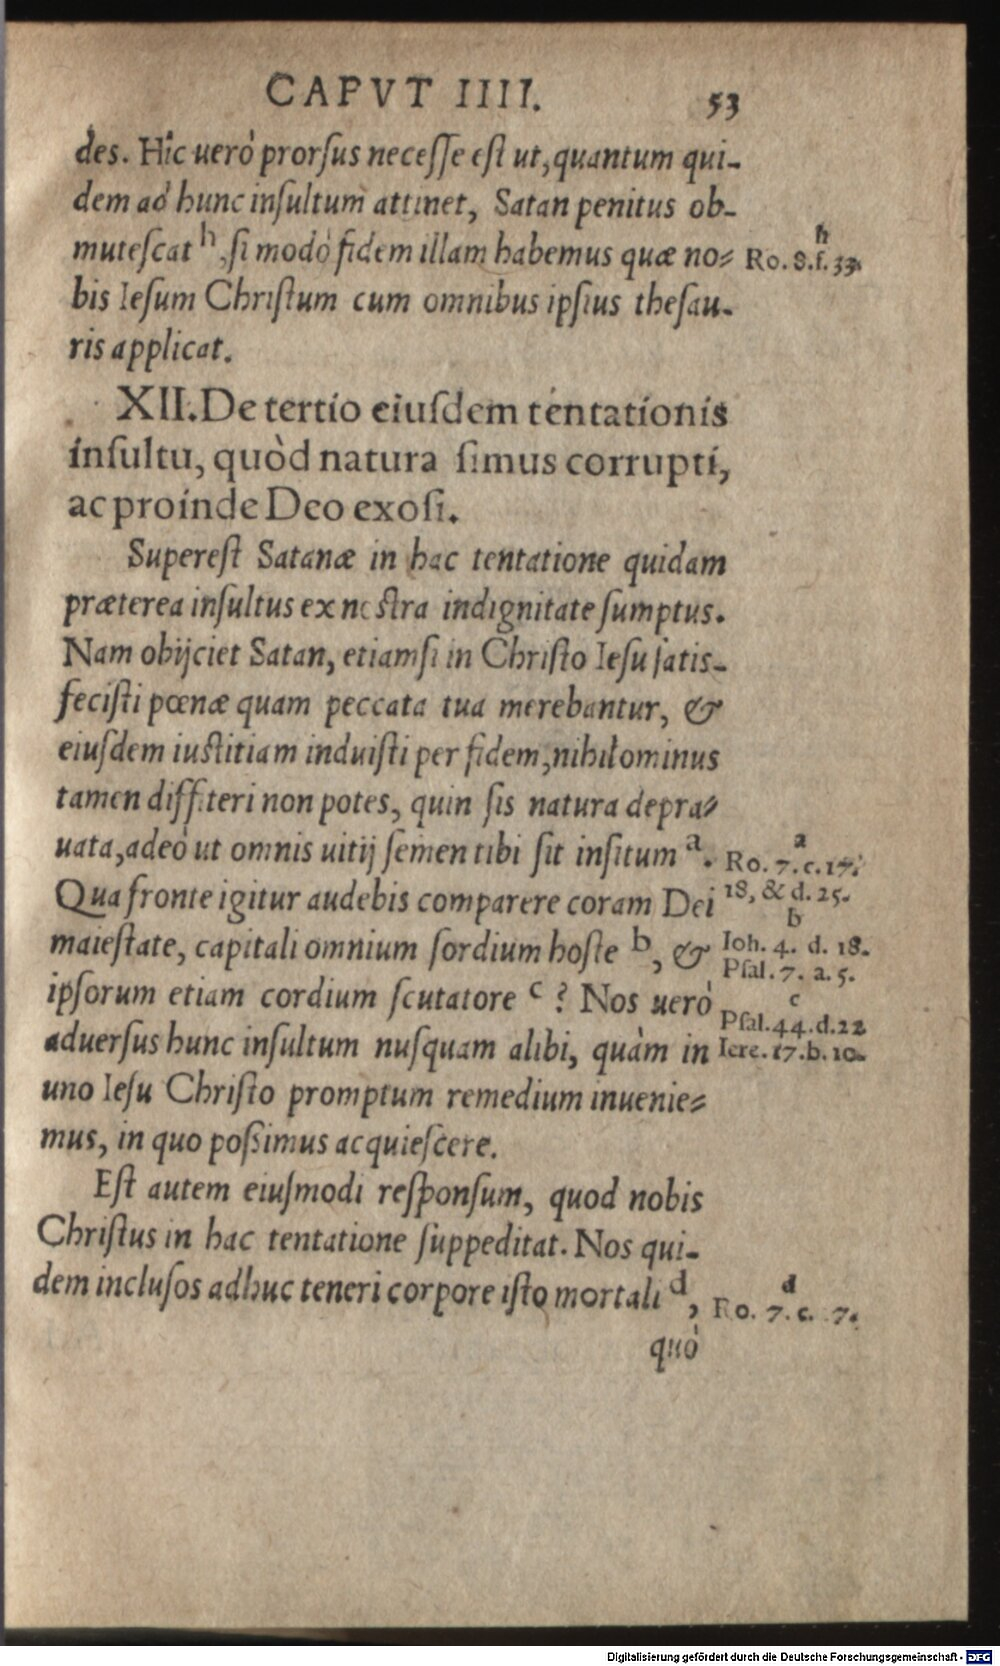 CAPVT IIII. 53
des. Hic uerò prorſus neceſſe eſt ut, quantum qui-
dem ad hunc inſultum attinet, Satan penitus ob-
muteſcat h, ſi modò fidem illam habemus quæ no-
h
Ro. 8. f. 33.
bis Ieſum Chriſtum cum omnibus ipſius theſau-
ris applicat.
XII. De tertio eiuſdem tentationis
inſultu, quòd natura ſimus corrupti,
ac proinde Deo exoſi.
Supereſt Satanæ in hac tentatione quidam
præterea inſultus ex noſtra indignitate ſumptus.
Nam obijciet Satan, etiamſi in Chriſto Ieſu ſatis-
feciſti pœnæ quam peccata tua merebantur, &
eiuſdem iuſtitiam induiſti per fidem, nihilominus
tamen diffiteri non potes, quin ſis natura depra-
uata, adeò ut omnis uitij ſemen tibi ſit inſitum a.
a
Ro. 7. c. 17.
18, & d. 25.
Qua fronte igitur audebis comparere coram Dei
maieſtate, capitali omnium ſordium hoſte b, &
b
Ioh. 4. d. 18.
Pſal. 7. a. 5.
ipſorum etiam cordium ſcutatore c ? Nos uerò
c
Pſal. 44. d. 22
Iere. 17. b. 10.
aduerſus hunc inſultum nuſquam alibi, quàm in
uno Ieſu Chriſto promptum remedium inuenie-
mus, in quo poßimus acquieſcere.
Eſt autem eiuſmodi reſponſum, quod nobis
Chriſtus in hac tentatione ſuppeditat. Nos qui-
dem incluſos adhuc teneri corpore iſto mortali d,
d
Ro. 7. c.
quò
Digitalisierung gefördert durch die Deutsche Forschungsgemeinschaft - DFG